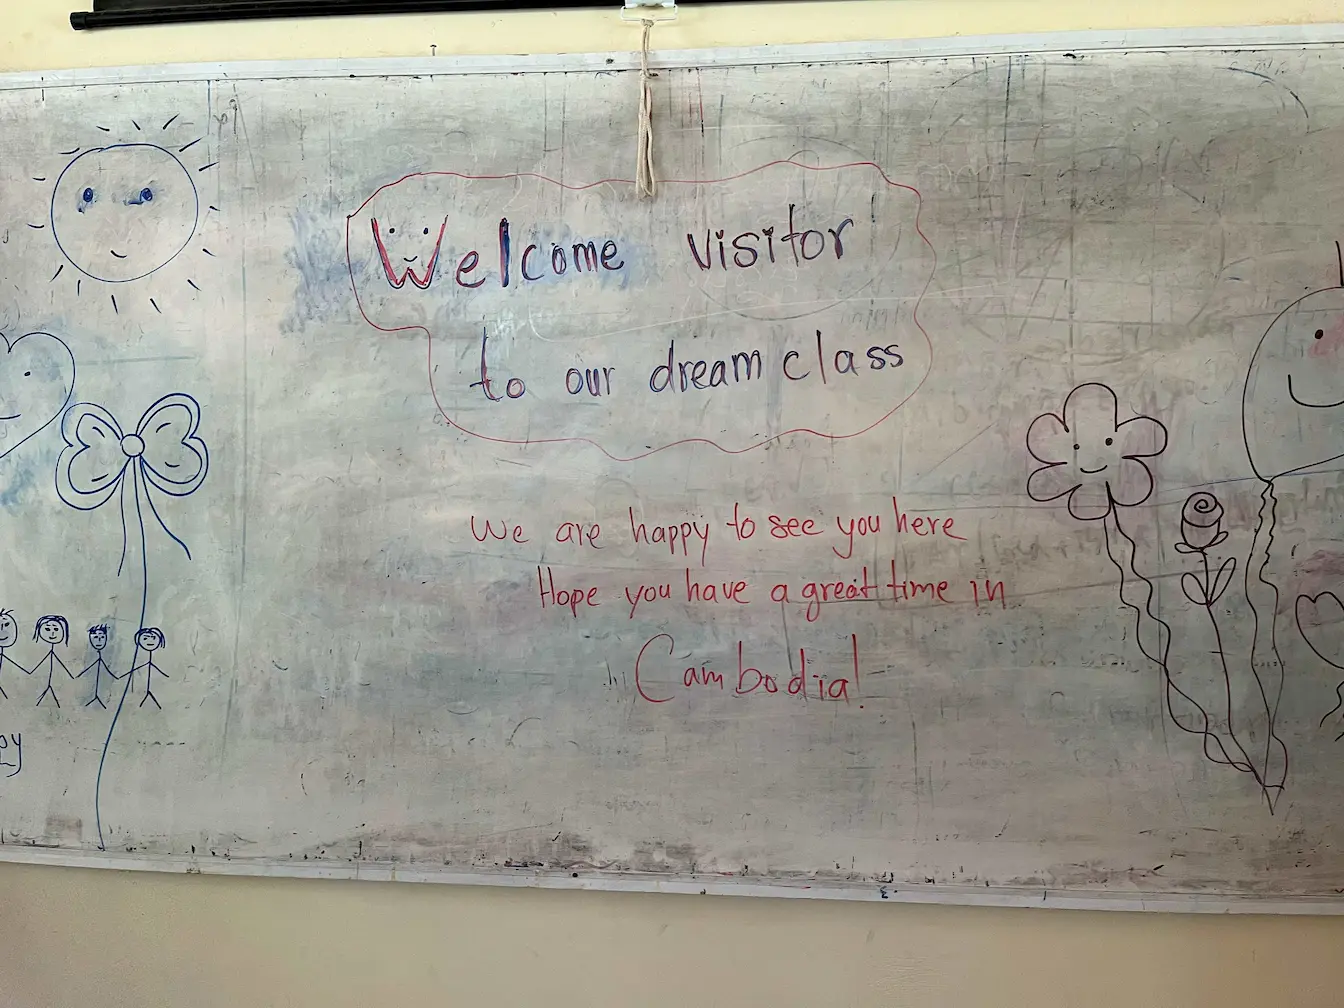 Welcome visitor
to our dream class
We are happy to see you here
Hope you have a great time in
Cambodia!